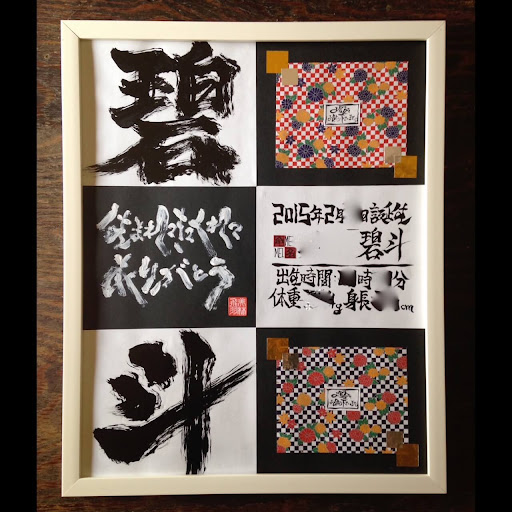 碧
生まれてきてくれて
ありがとう
2015年2月 日誕生
碧斗
出生時間: 時 分
体重 g 身長 cm
斗